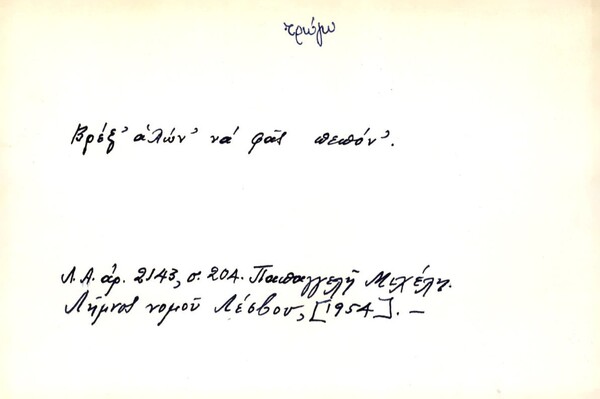 τρώγω
Βρέξ' ἁλών' νά φᾶς πεπόν'.
Λ.Α. ἀρ. 2143, σ. 204. Παπαγγελῆ Μιχέλη.
Λῆμνος νομοῦ Λέσβου, [1954]. –